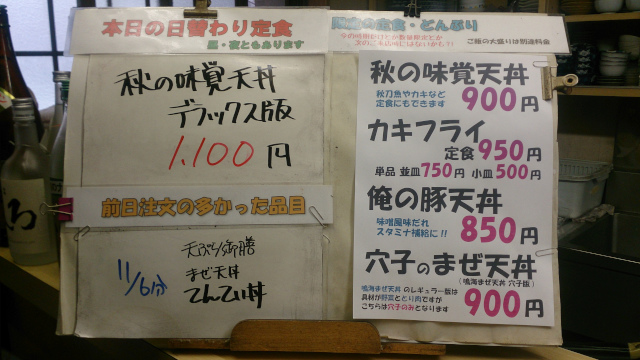 本日の日替わり定食
昼・夜ともあります
秋の味覚天丼
デラックス版
1,100円
前日注文の多かった品目
11/6分
天ぷら御膳
まぜ天丼
てんてい丼
の定食・どんぶり
ご飯の大盛りは別途料金
秋の味覚天丼
秋刀魚やカキなど
定食にもできます
900円
カキフライ
定食 950円
単品 並皿750円 小皿500円
俺の豚天丼
味噌風味だれ
スタミナ補給に!!
850円
穴子のまぜ天丼
(鳴海まぜ天丼 穴子版)
鳴海まぜ天丼 のレギュラー版は
具材が野菜ととり肉ですが
こちらは穴子のみとなります
900円